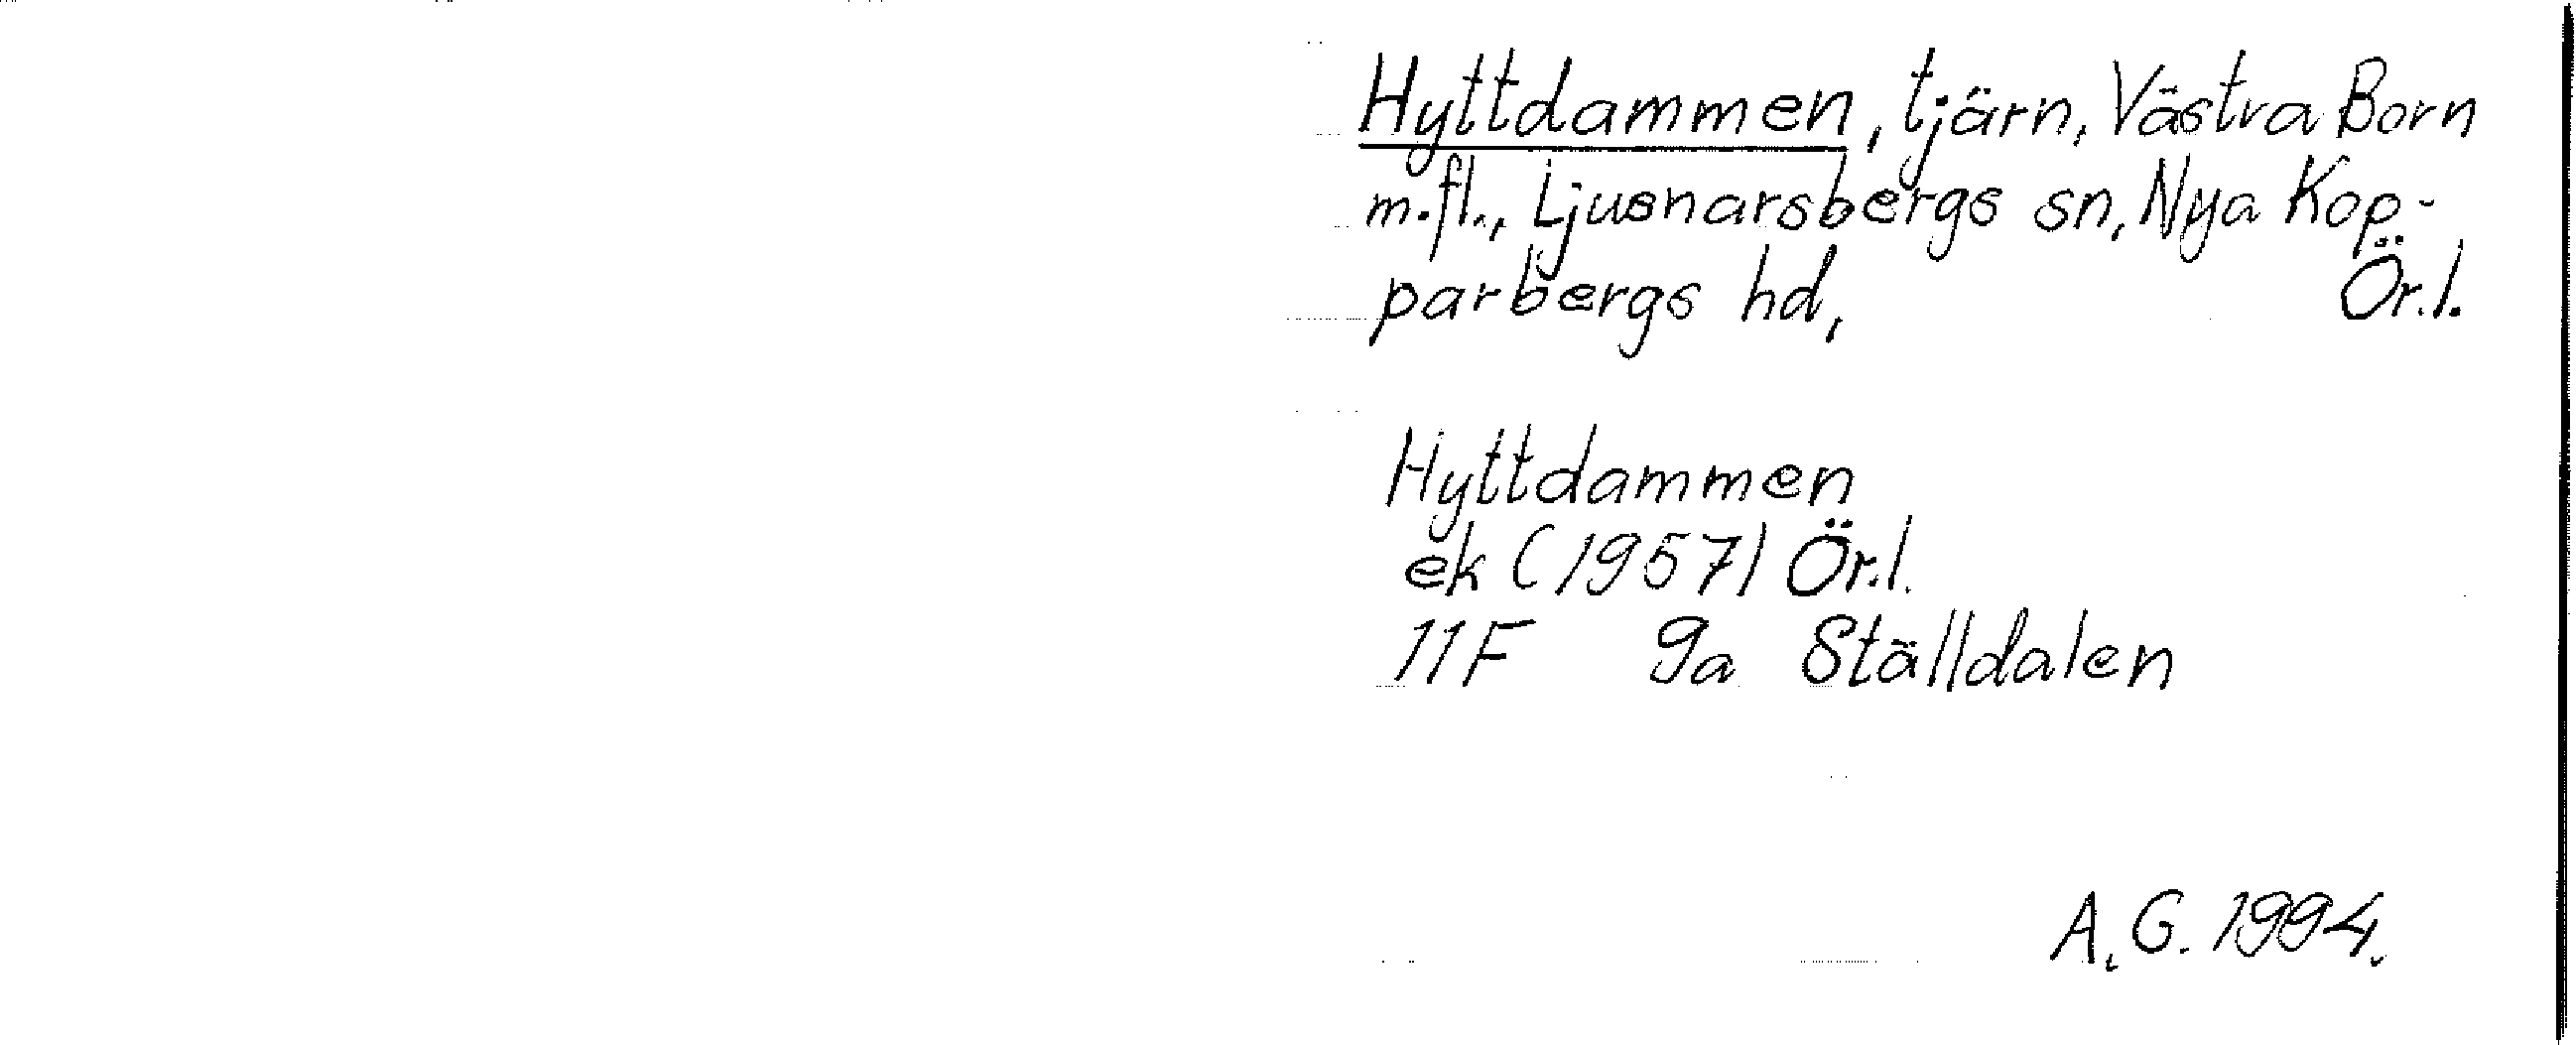 Hyttdammen, tjärn, Västra Born
m.fl., Ljusnarsbergs sn, Nya Kop-
parbergs hd, Ör.l.
Hyttdammen
ek (1957) Ör.l.
11F 9a Ställdalen
A.G. 1994.